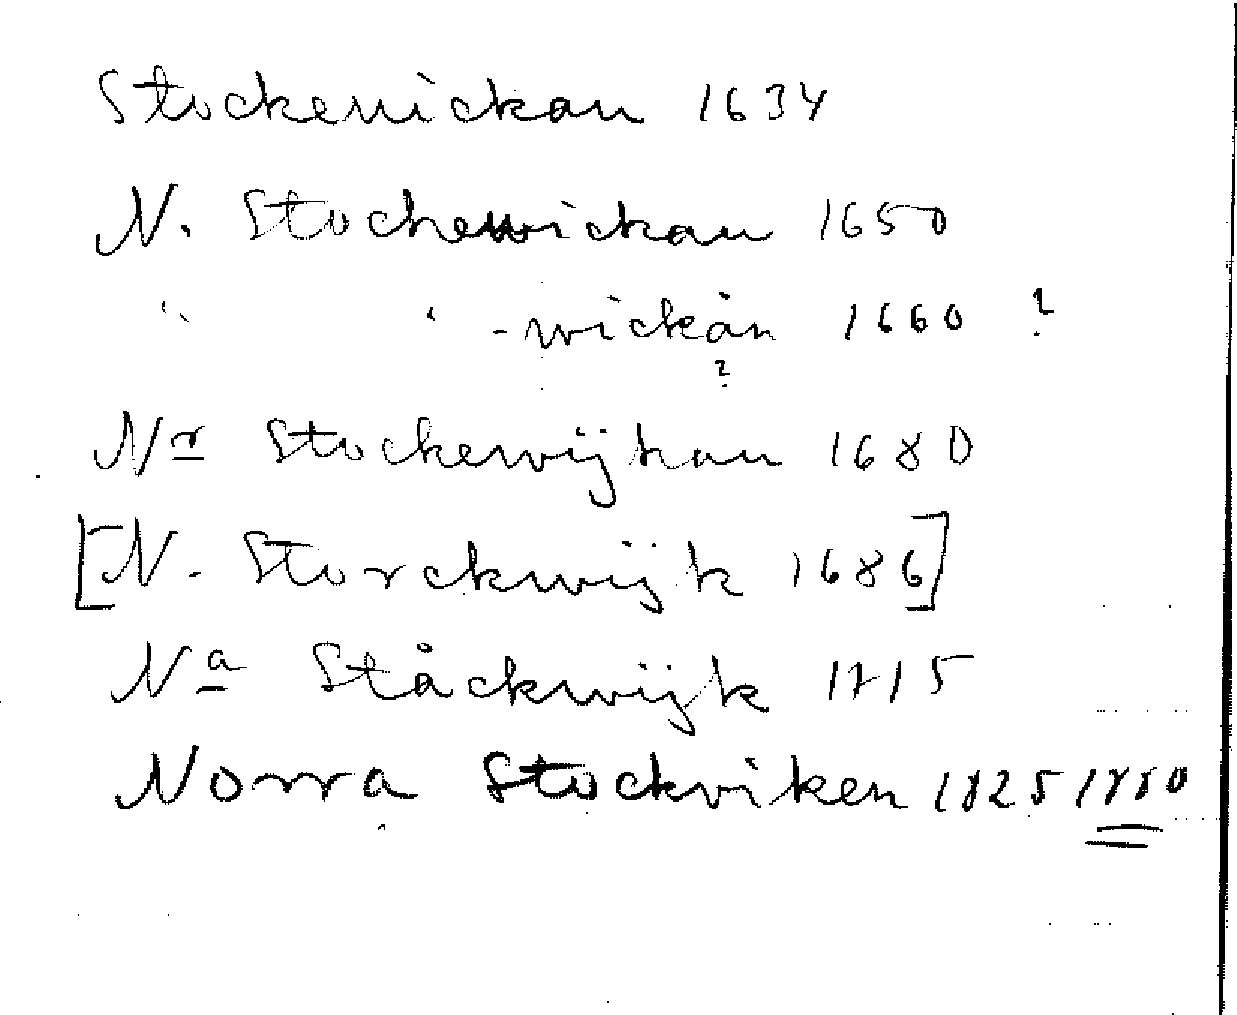 Stockevickan 1634
N. Stockewickan 1650
" " -wickan 1660 ?
?
Nr Stockewijkan 1680
[N. Storckwijk 1686]
Na Ståckwijk 1715
Norra Stockviken 1825 1880